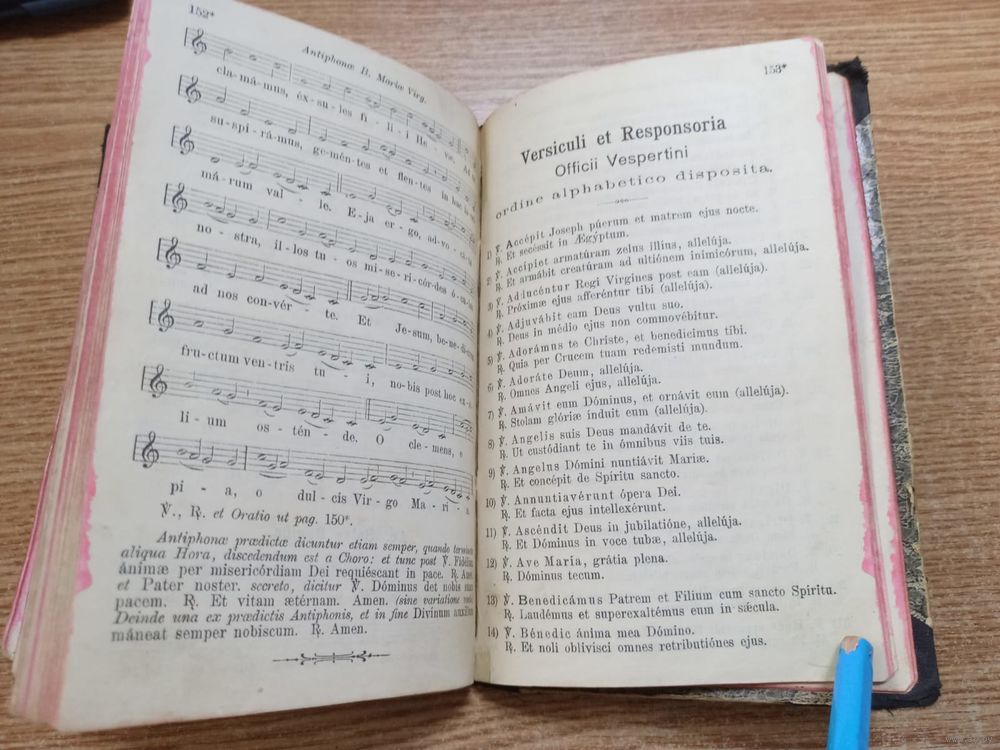 152*
Antiphonæ B. Mariæ Virg.
cla-má-mus, éx-su-les fi - li - i He - væ. Ad
su-spi-rá-mus, ge-mén-tes et flen-tes in hac la
má-rum val - le. E-ja er-go, ad-vo-
no - stra, il-los tu - os mi-se-ri-cór-des ó-cu-
ad nos con-vér - te. Et Je-sum, be-ne-di-
fru-ctum ven-tris tu - i, no-bis post hoc ex-
li - um os - tén - de. O cle-mens, o
pi - a, o dul-cis Vir-go Ma-ri-a
℣., ℟. et Oratio ut pag. 150*.
Antiphonæ prædictæ dicuntur etiam semper, quando
aliqua Hora, discedendum est a Choro: et tunc post ℣.
ánimæ per misericórdiam Dei requiéscant in pace. ℟. Amen.
et Pater noster. secreto, dicitur ℣. Dóminus det nobis suam
pacem. ℟. Et vitam ætérnam. Amen. (sine variatione
Deinde una ex prædictis Antiphonis, et in fine Divinum
máneat semper nobiscum. ℟. Amen.
153*
Versiculi et Responsoria
Officii Vespertini
ordine alphabetico disposita.
1) ℣. Accépit Joseph púerum et matrem ejus nocte.
℟. Et secéssit in Ægýptum.
2) ℣. Accípiet armatúram zelus illíus, allelúja.
℟. Et armábit creatúram ad ultiónem inimicórum, allelúja.
3) ℣. Adducéntur Regi Vírgines post eam (allelúja).
℟. Próximæ ejus afferéntur tibi (allelúja).
4) ℣. Adjuvábit eam Deus vultu suo.
℟. Deus in médio ejus non commovébitur.
5) ℣. Adorámus te Christe, et benedícimus tibi.
℟. Quia per Crucem tuam redemísti mundum.
6) ℣. Adoráte Deum, allelúja.
℟. Omnes Angeli ejus, allelúja.
7) ℣. Amávit eum Dóminus, et ornávit eum (allelúja).
℟. Stolam glóriæ índuit eum (allelúja).
8) ℣. Angelis suis Deus mandávit de te.
℟. Ut custódiant te in ómnibus viis tuis.
9) ℣. Angelus Dómini nuntiávit Mariæ.
℟. Et concépit de Spíritu sancto.
10) ℣. Annuntiavérunt ópera Dei.
℟. Et facta ejus intellexérunt.
11) ℣. Ascéndit Deus in jubilatióne, allelúja.
℟. Et Dóminus in voce tubæ, allelúja.
12) ℣. Ave María, grátia plena.
℟. Dóminus tecum.
13) ℣. Benedicámus Patrem et Fílium cum sancto Spíritu.
℟. Laudémus et superexaltémus eum in sǽcula.
14) ℣. Bénedic ánima mea Dómino.
℟. Et noli oblivísci omnes retributiónes ejus.